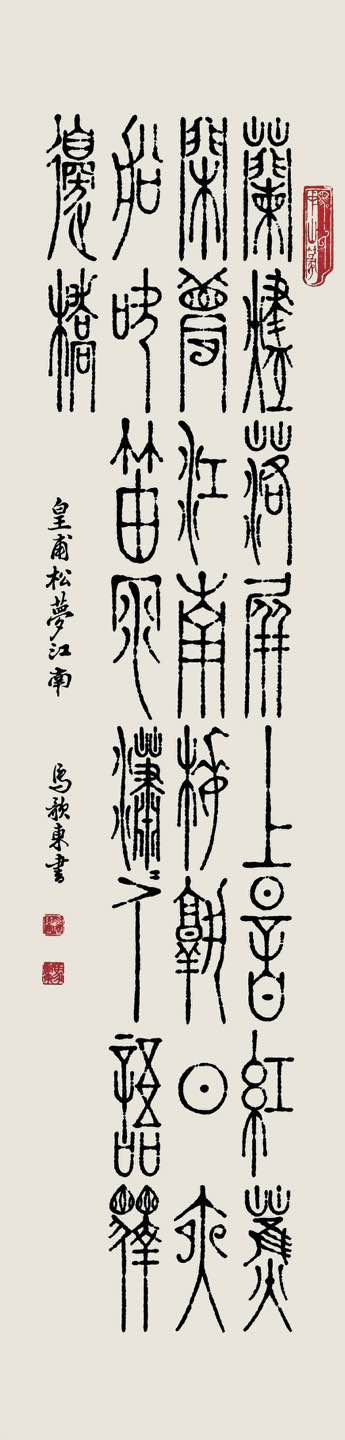 蘭燼落屏上暗紅蕉
閑夢江南梅熟日夜
船吹笛雨瀟〻人語驛
邊橋
皇甫松夢江南 馬歌東書